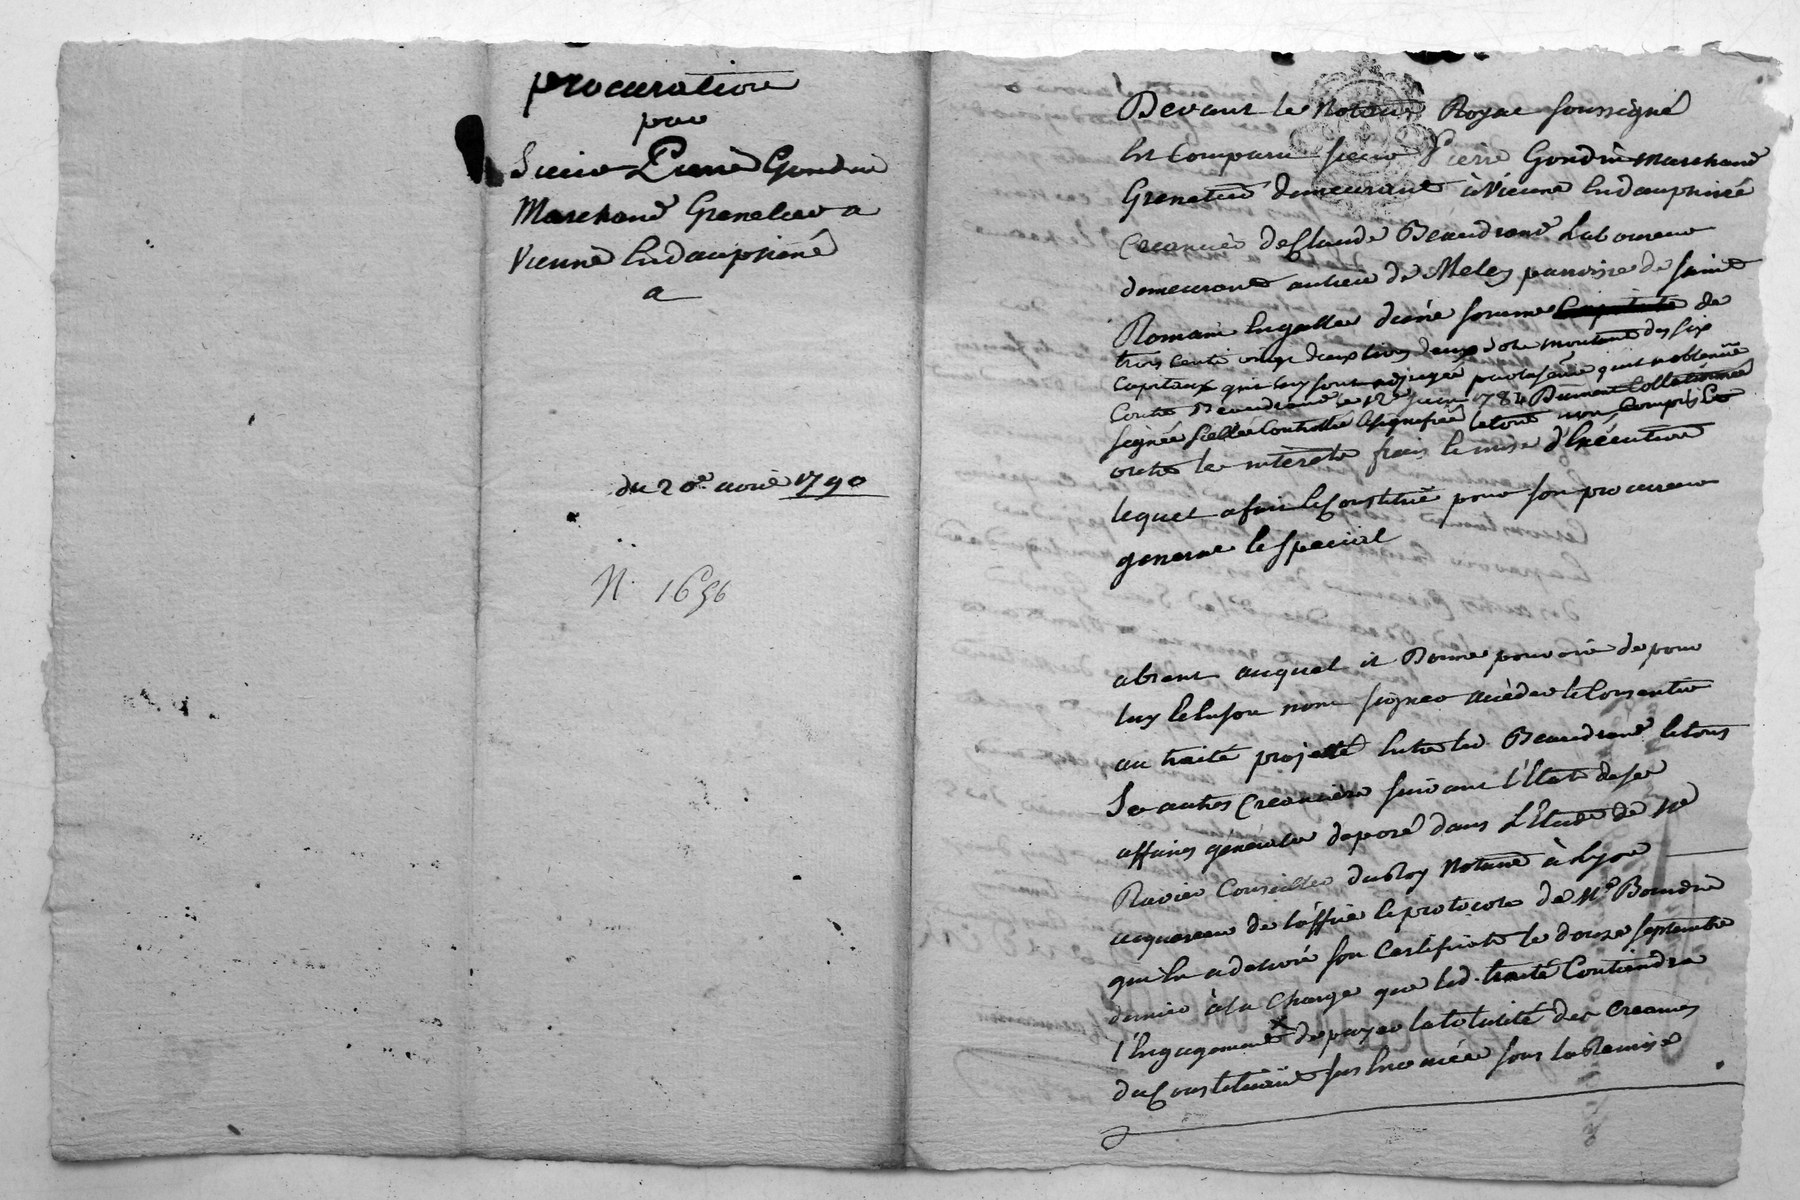 procuration
par
Sieur Pierre Gondin
Marchand Grenetier a
Vienne En dauphiné
a
du 20e. avril 1790
N. 1656
Devant le Notaire Royal soussigné
Est Comparu sieur Pierre Gondin marchand
Grenetier demeurant à Vienne En dauphiné
Creancier de Claude Beaudrand Laboureur
demeurant au lieu de Meley parroisse de saint
Romain En galle d'une somme de
trois cents vingt deux livres deux sols montant des six
Capitaux qui luy sont adjugés par la sentence quil a obtenüe
Contre Beaudrand le 12e Juin 1784 Dument Collationnée
signée scellée Controllée & signifiée le tout non Compris
outre les intérets frais & mise d'Exécution
lequel a fait & Constitué pour son procureur
general & special
absent auquel il Donne pouvoir de pour
luy & En son nom signer accèder & Consentir
au traité projetté Entre led. Beaudrand & tous
Ses autres Creanciers suivant l'Etat de ses
affaires générales deposé dans L'Etude de Me
Ravier Conseiller du Roy Notaire à Lyon
acquereur de l'office & protocole de Me Bourdin
qui En a delivré son Certificat le douze septembre
dernier à la Charge que led. traité Contiendra
l'Engagement de payer la totalité des Creances
du Constituant sus Enoncée sous la Remise